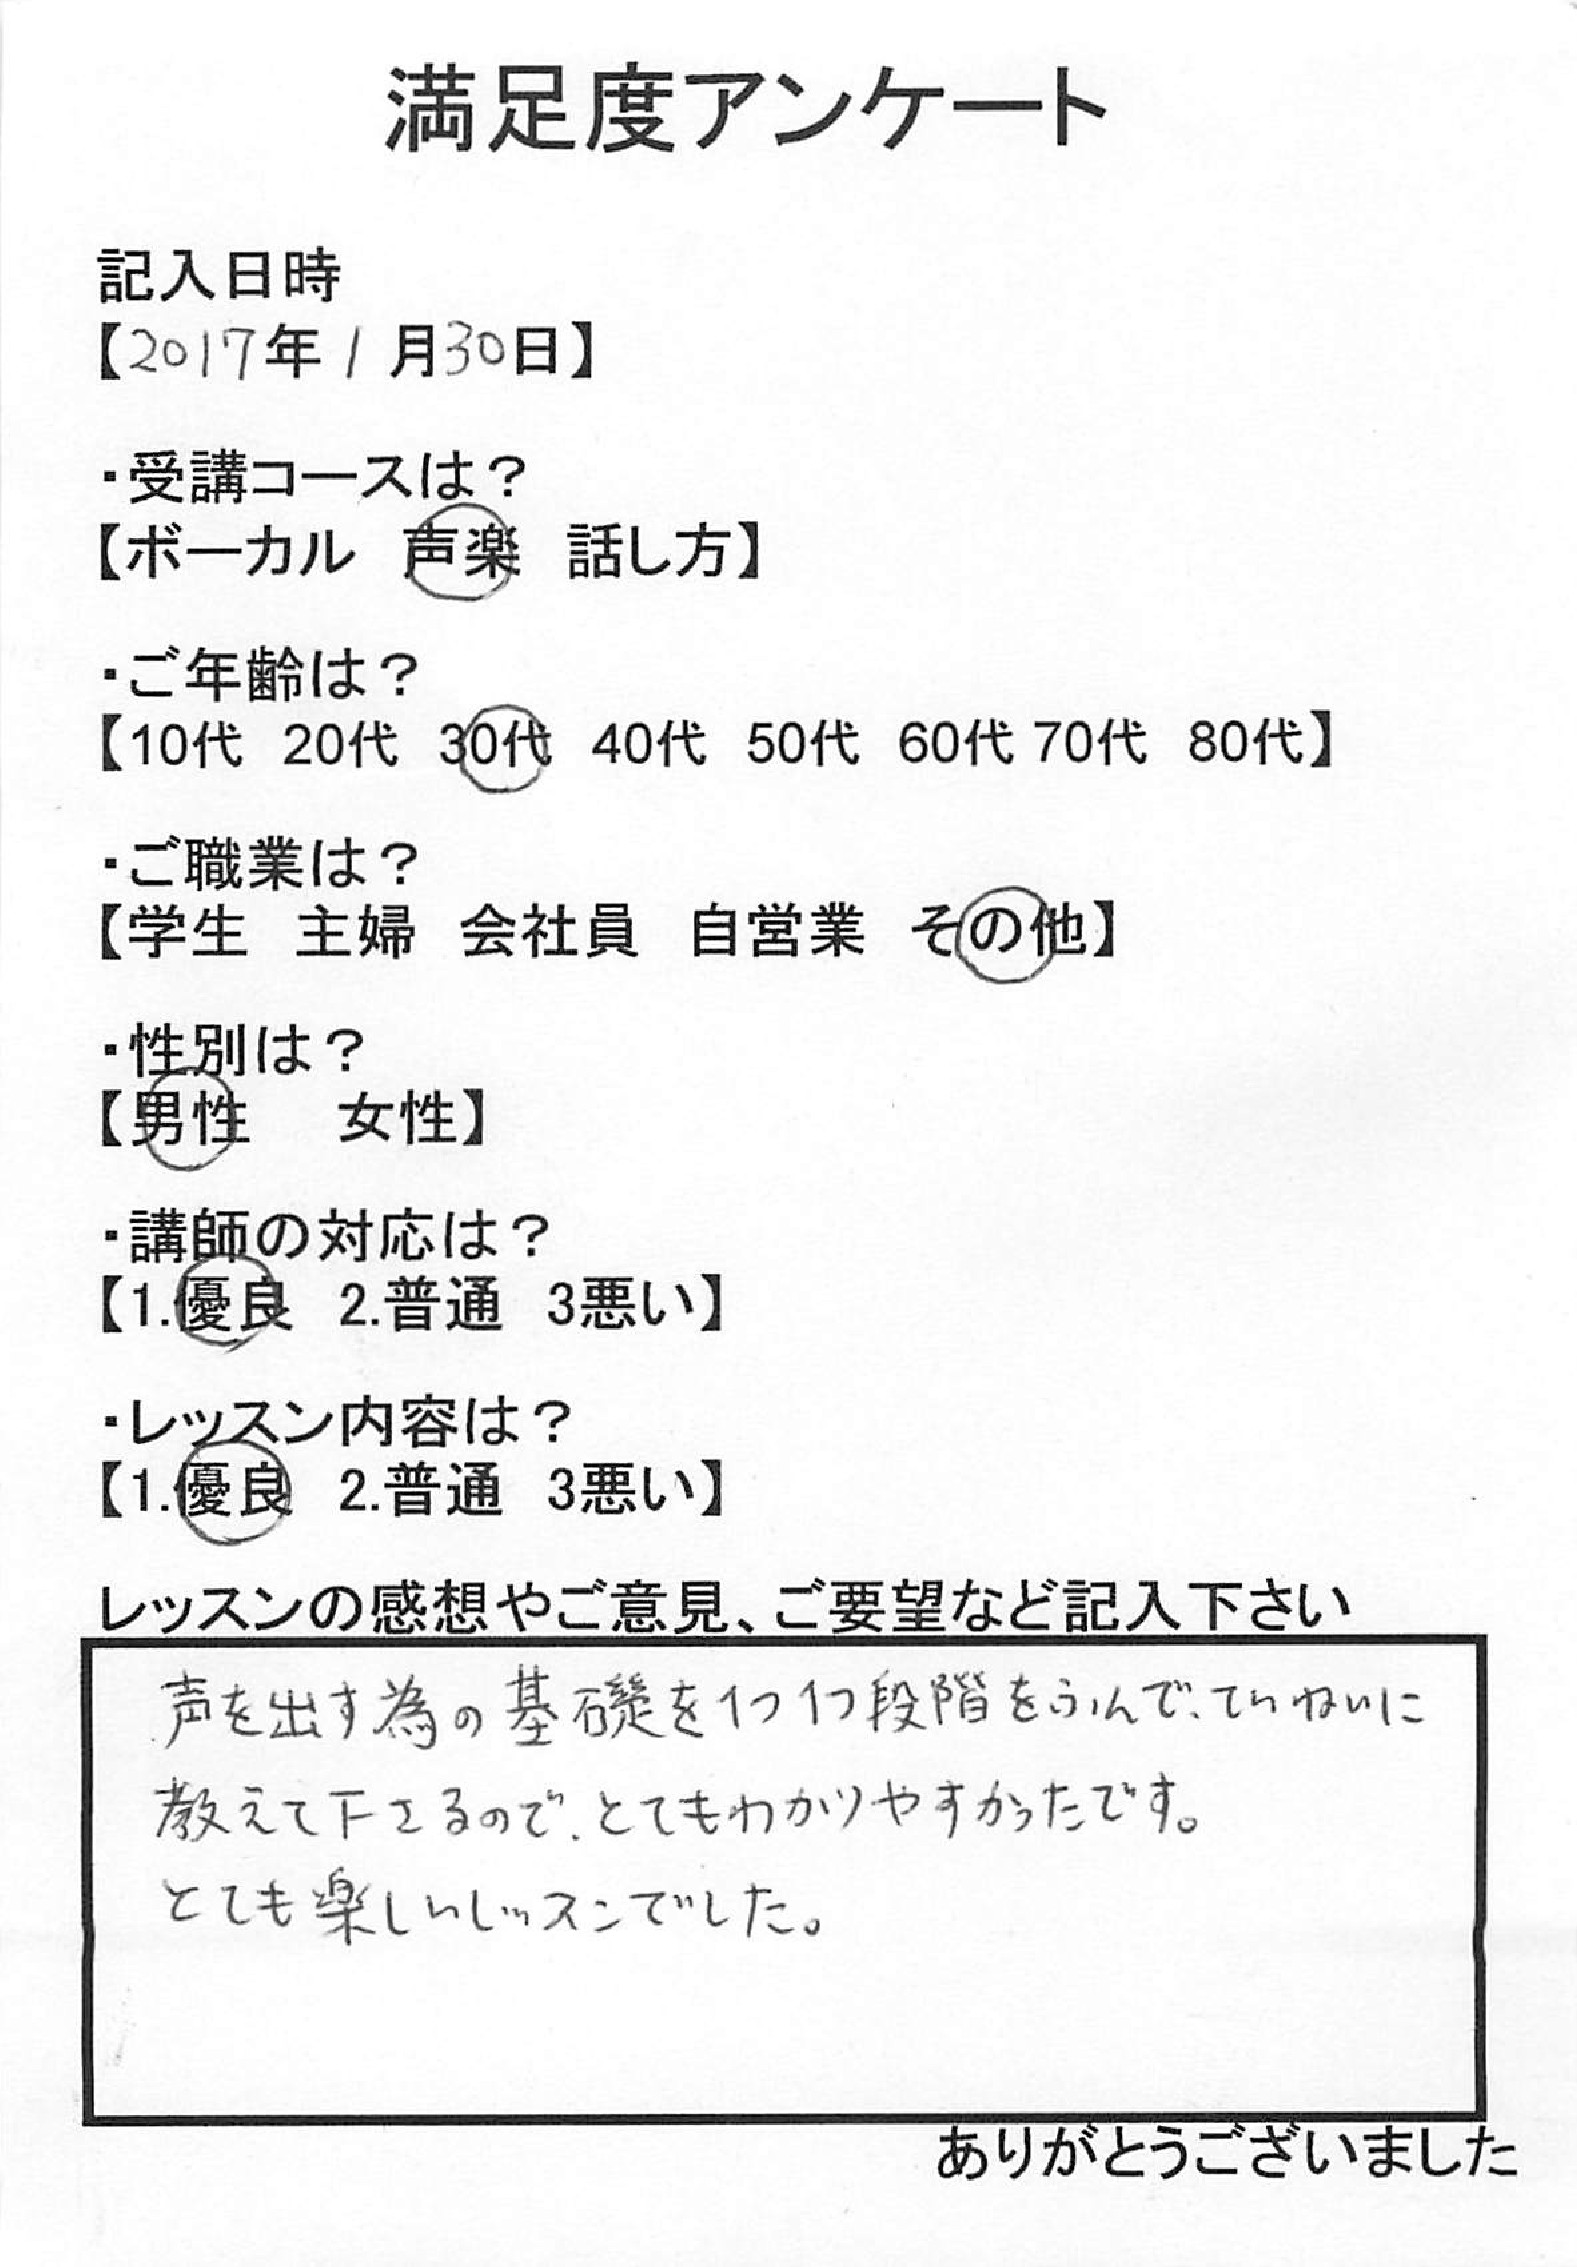 満足度アンケート
記入日時
【2017年1月30日】
・受講コースは？
【ボーカル　声楽　話し方】
・ご年齢は？
【10代　20代　30代　40代　50代　60代 70代　80代】
・ご職業は？
【学生　主婦　会社員　自営業　その他】
・性別は？
【男性　女性】
・講師の対応は？
【1.優良　2.普通　3悪い】
・レッスン内容は？
【1.優良　2.普通　3悪い】
レッスンの感想やご意見、ご要望など記入下さい
声を出す為の基礎を1つ1つ段階をふんで、ていねいに
教えて下さるので、とてもわかりやすかったです。
とても楽しいレッスンでした。
ありがとうございました